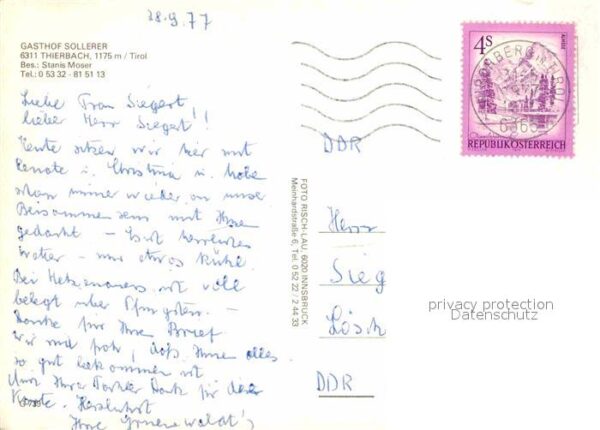 28.9.77
GASTHOF SOLLERER
6311 THIERBACH, 1175 m / Tirol
Bes.: Stanis Moser
Tel.: 0 53 32 - 81 5 13
Liebe Frau Siegert
lieber Herr Siegert!!
Heute sitzen wir hier mit
Renate u. Christina u. habe
schon immer wieder an unser
Beisammensein mit Ihnen
gedacht - Es ist herrliches
Wetter - nur etwas kühl
Bei ist voll
belegt über Pfingsten -
Danke für Ihren Brief
wir sind froh, daß Ihnen alles
so gut bekommen ist
Ihrer Tochter Dank für die
Karte. Herzlichst
Ihre Grunewaldt's
G 739
FOTO RISCH-LAU, 6020 INNSBRUCK
Meinhardstraße 6, Tel. 0 52 22 / 2 44 33
4S
REPUBLIK ÖSTERREICH
DDR
Herr
Sieg
Lösch
DDR
privacy protection
Datenschutz